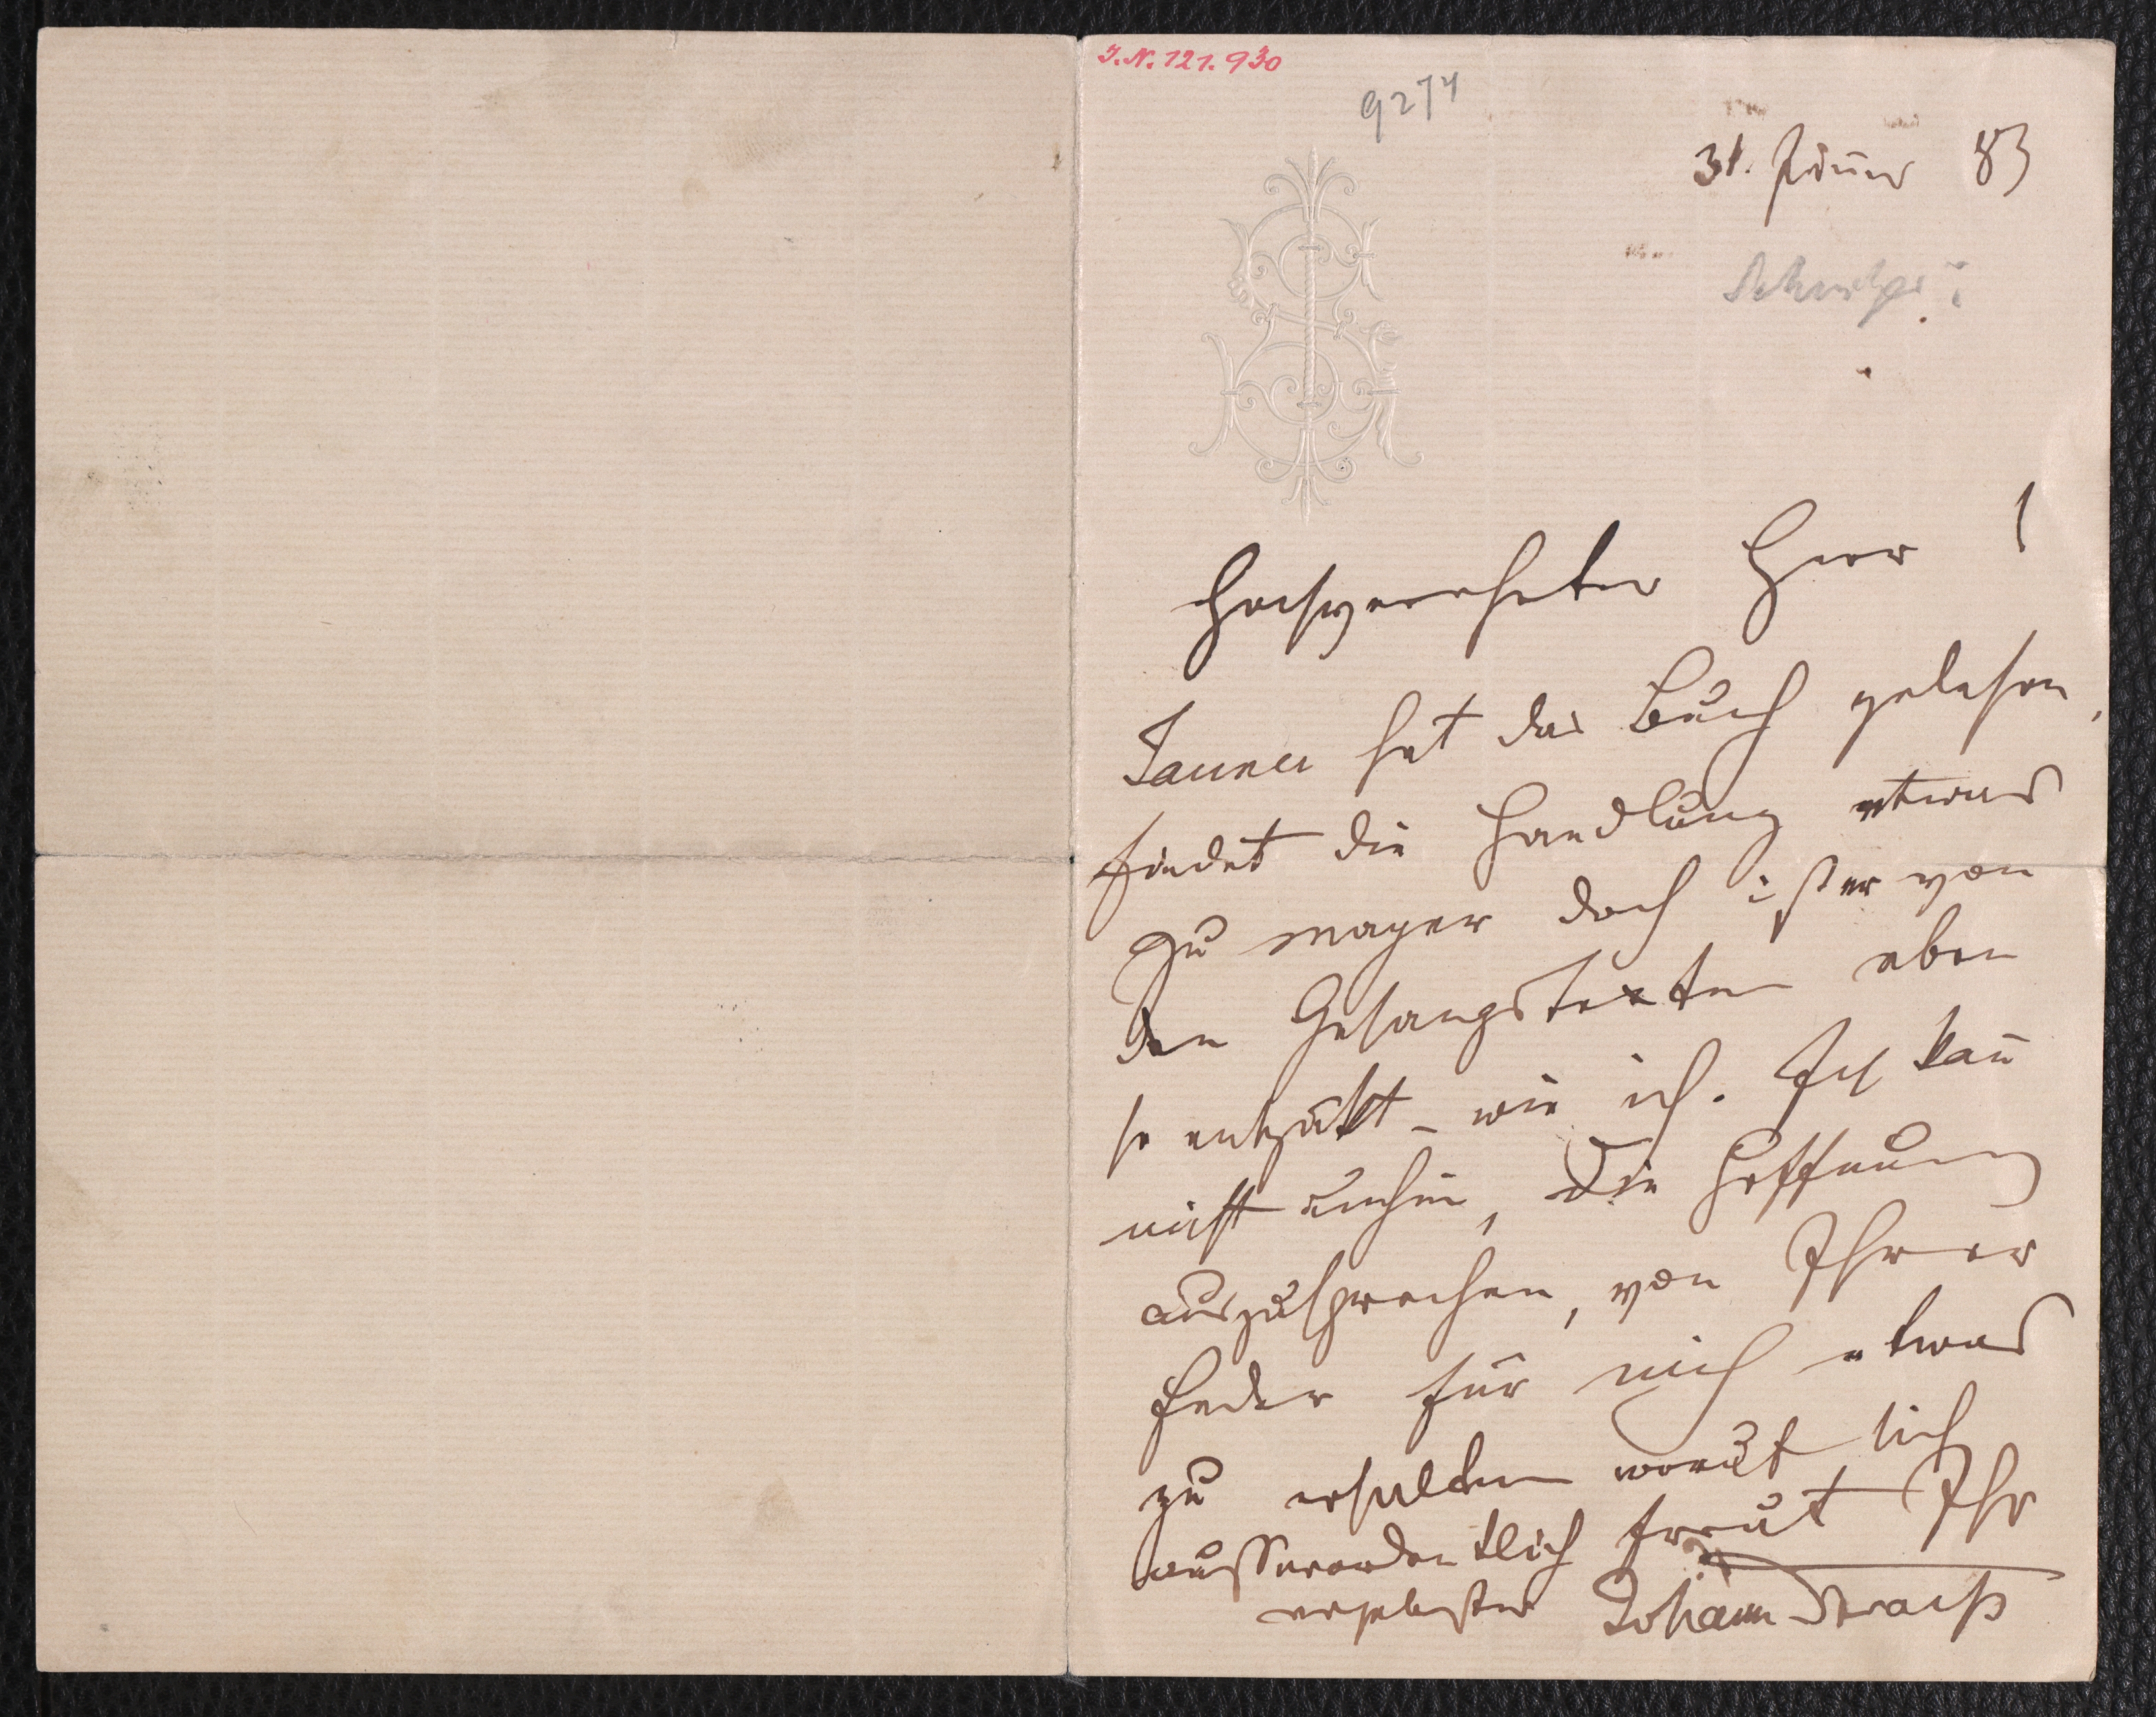 I.N. 121.930
9274
31. Jänner 83
Schnitzer?
Hochverehrter Herr!
Jauner hat das Buch gelesen,
findet die Handlung etwas
zu mager doch ist er von
den Gesangstexten eben
so entzükt – wie ich. Ich kan̄
nicht umhin, die Hoffnung
auszusprechen, von Ihrer
Feder für mich etwas
zu erhalten worauf sich
ausserordentlich freut Ihr
ergebenster Johann Strauß